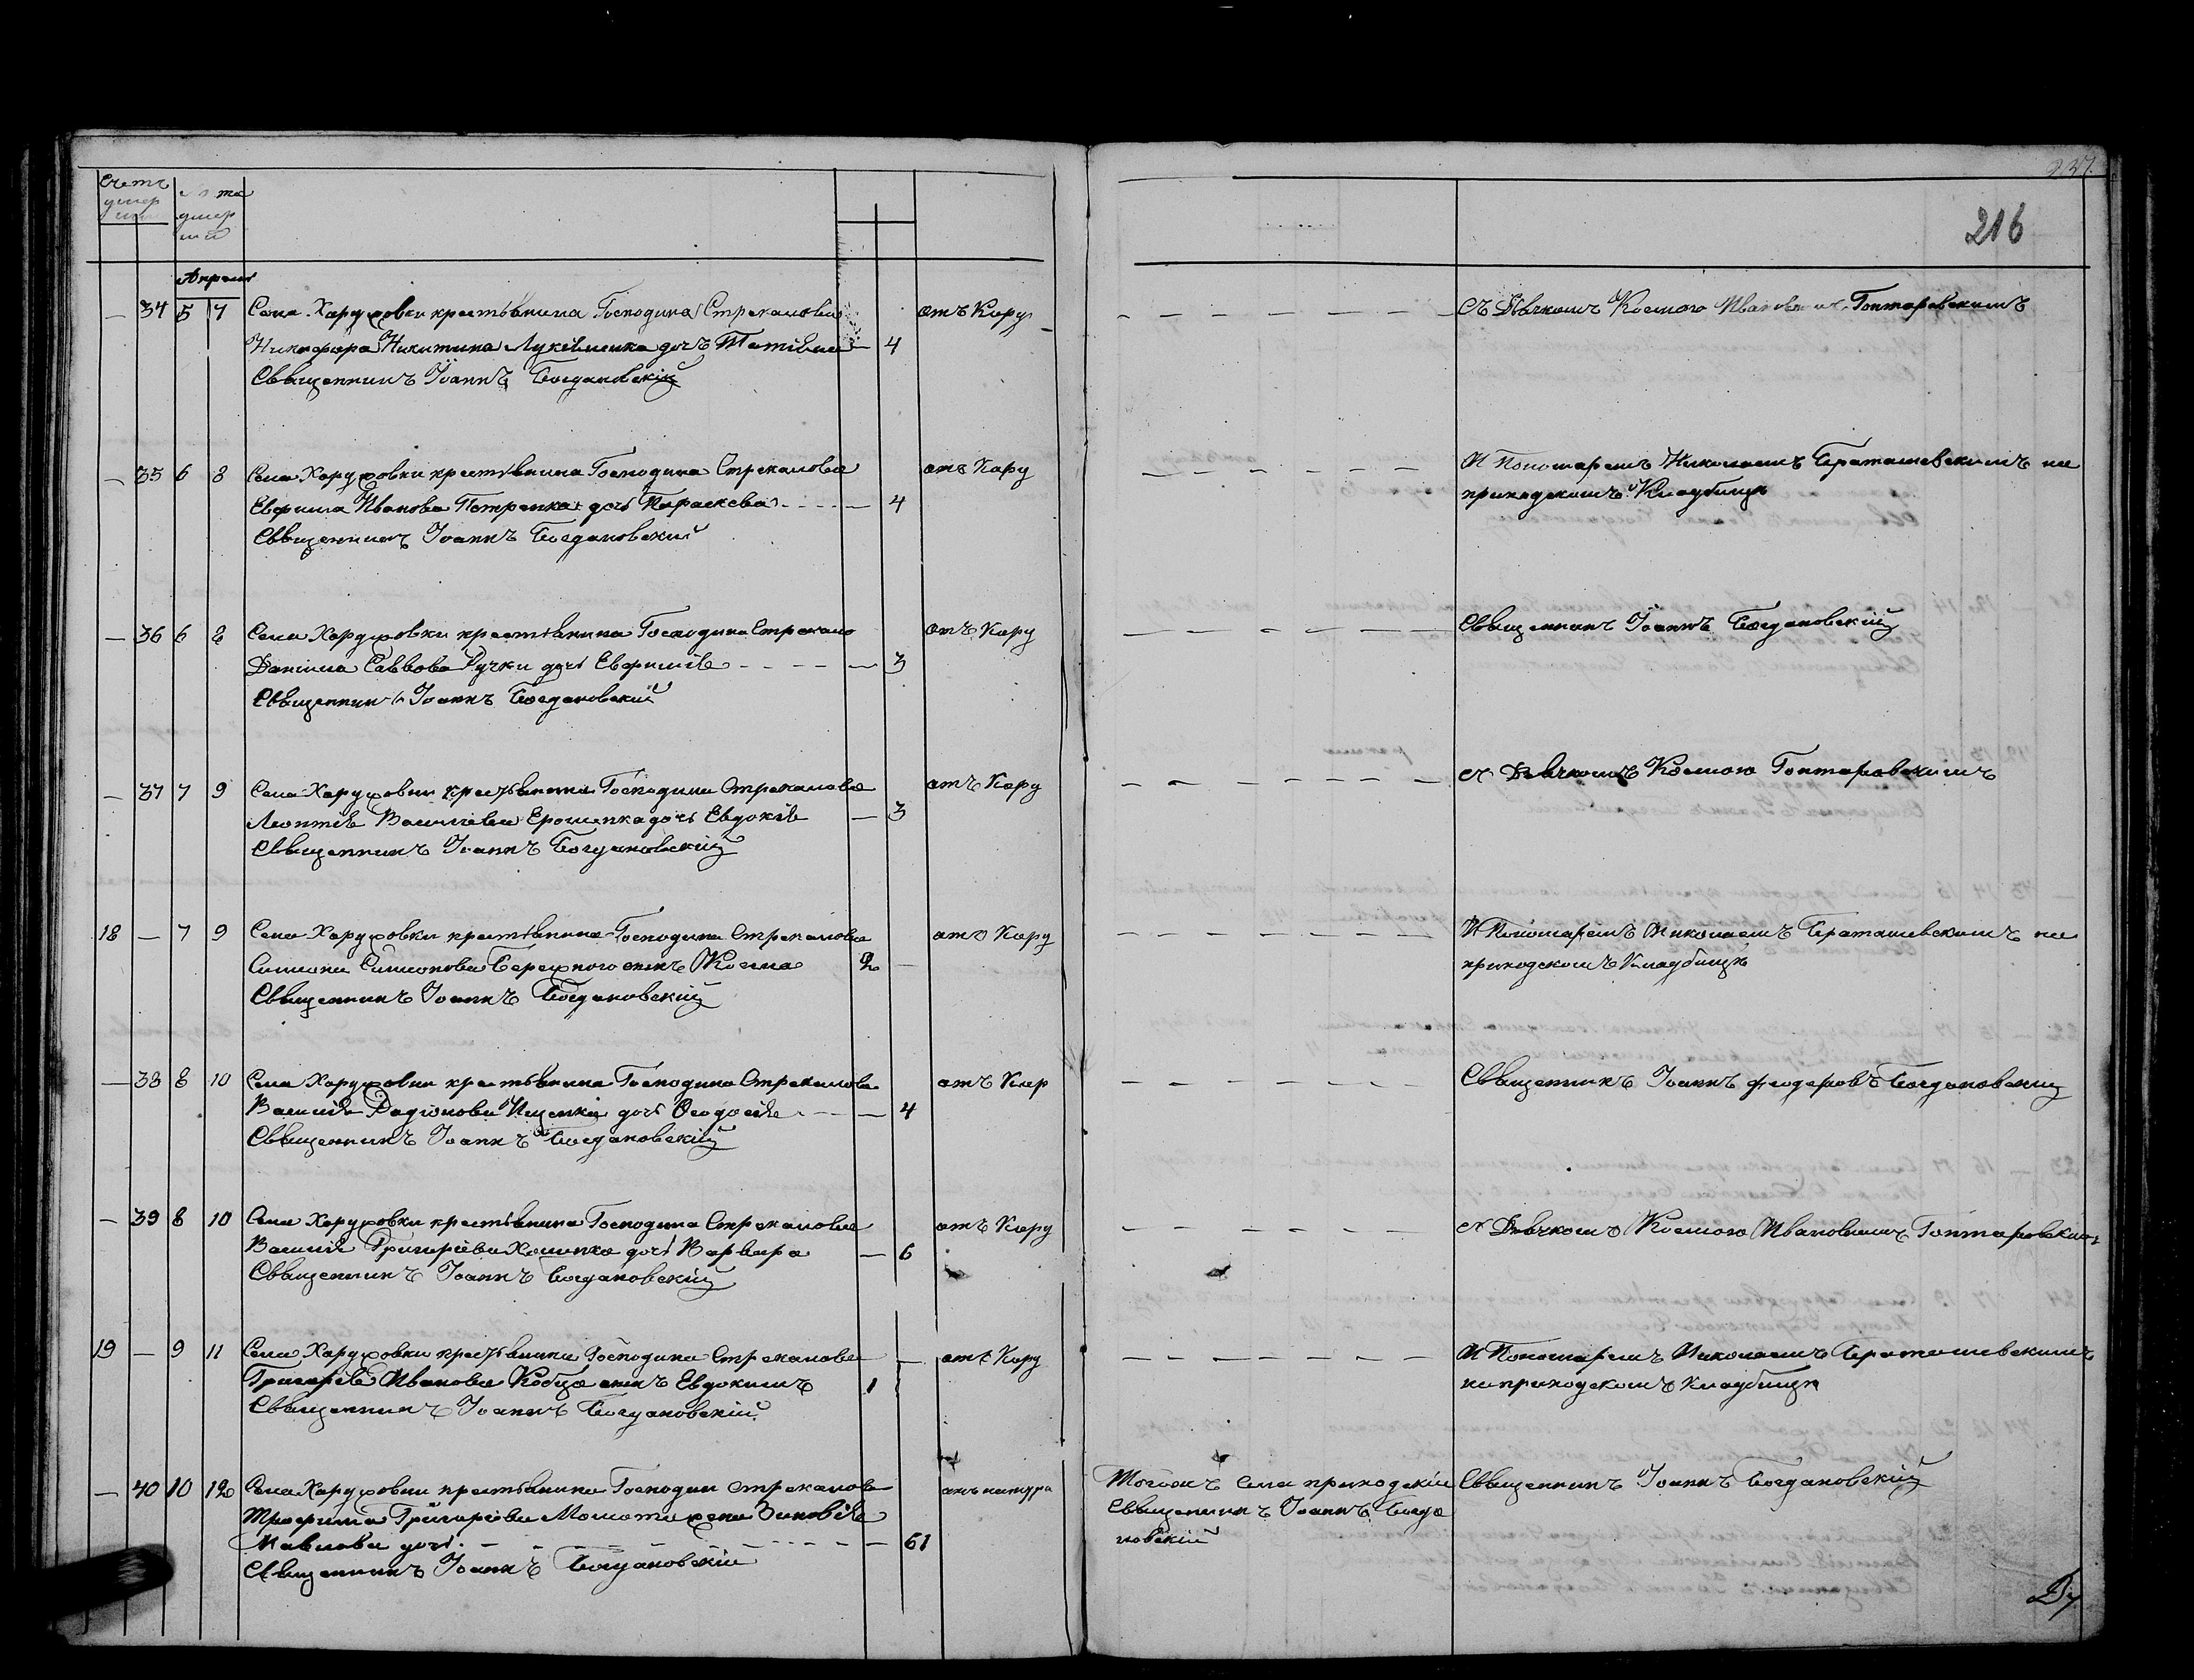 Счетъ умер
Апреля
237.
216
— 34 5 7 Села Хардуовки крестьянина Господина Стрекалова отъ Кору
Никифора Никитина дочь Татіана — 4
Священникъ Іоаннъ Богдановскій
съ Дьячкомъ Космою Ивановымъ Гонтаровскимъ
— 35 6 8 Села крестьянина Господина Стрекалова отъ Кору
Ефрима Иванова Петренка дочь Параскева — 4
Священникъ Іоаннъ Богдановскій
И Пономаремъ Николаемъ на
приходскомъ Кладбищѣ
— 36 6 8 Села крестьянина Господина Стрекало отъ Кору
Даніила Саввова Ручки дочь Евфимія — 3
Священникъ Іоаннъ Богдановскій
Священникъ Іоаннъ Богдановскій
— 37 7 9 Села крестьянина Господина Стрекалова отъ Кору
Леонтія Василіева Ерошенка дочь Евдокія — 3
Священникъ Іоаннъ Богдановскій
съ Дьячкомъ Космою Гонтаровскимъ
18 — 7 9 Села крестьянина Господина Стрекалова отъ Кору
Симона Симонова Бережного сынъ Косма 2 —
Священникъ Іоаннъ Богдановскій
И Пономаремъ Николаемъ на
приходскомъ Кладбищѣ
— 38 8 10 Села крестьянина Господина Стрекалова отъ Кор
Василія Радіонова Ищенка дочь Феодосія — 4
Священникъ Іоаннъ Богдановскій
Священникъ Іоаннъ Феодоровъ Богдановскій
— 39 8 10 Села крестьянина Господина Стрекалова отъ Кору
Василія Григоріева Хоменка дочь Варвара — 6
Священникъ Іоаннъ Богдановскій
съ Дьячкомъ Космою Ивановымъ Гонтаровским
19 — 9 11 Села крестьянина Господина Стрекалова — отъ Кору
Григорія Иванова Кобца сынъ Евдокимъ 1
Священникъ Іоаннъ Богдановскій
И Пономаремъ Николаемъ
на приходскомъ кладбищѣ
— 40 10 12 Села крестьянина Господин Стрекалов отъ натура
Трофима Григоріева жена Зиновія
Павлова дочь — 61
Священникъ Іоаннъ Богдановскій
Тогожъ Села приходскій
Священникъ Іоаннъ Богда
новскій
Священникъ Іоаннъ Богдановскій